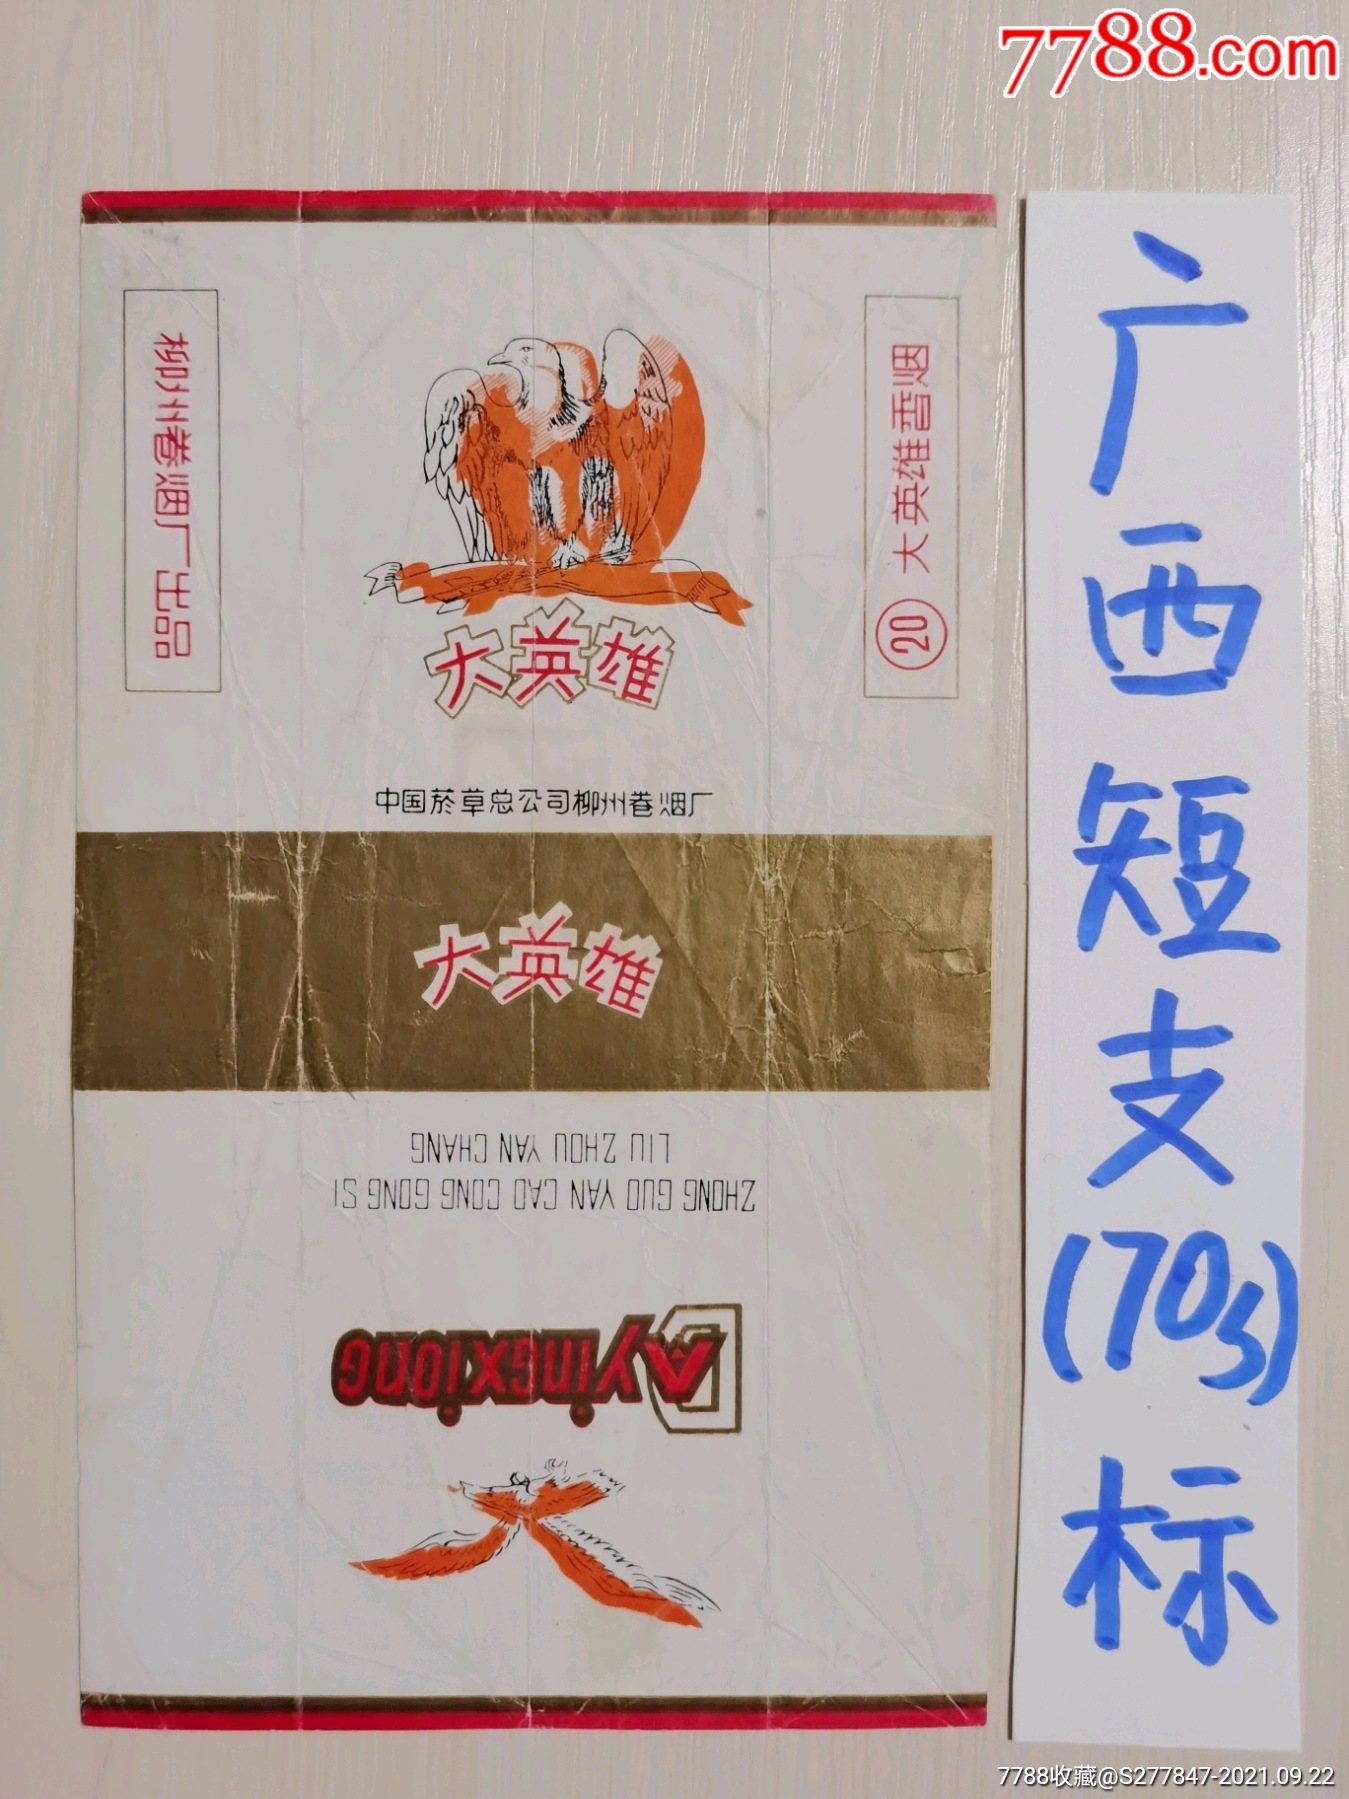 7788.com
柳州卷烟厂出品
大英雄
⑳ 大英雄香烟
中国菸草总公司柳州卷烟厂
大英雄
ZHONG GUO YAN CAO CONG GONG SI
LIU ZHOU YAN CHANG
DAyingxiong
广西短支(70s)标
7788收藏@S277847-2021.09.22